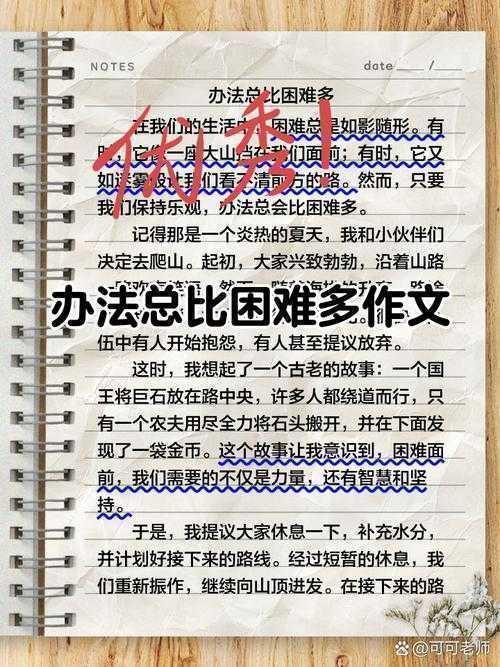 NOTES
date ____ / ____
办法总比困难多
优秀！
在我们的生活中，困难总是如影随形。有
时，它像一座大山挡在我们面前；有时，它又
如迷雾般让我们看不清前方的路。然而，只要
我们保持乐观，办法总会比困难多。
记得那是一个炎热的夏天，我和小伙伴们
决定去爬山。起初，大家兴致勃勃，沿着山路
办法总比困难多作文
伍中有人开始抱怨，有人甚至提议放弃。
这时，我想起了一个古老的故事：一个国
王将巨石放在路中央，许多人都绕道而行，只
有一个农夫用尽全力将石头搬开，并在下面发
现了一袋金币。这个故事让我意识到，困难面
前，我们需要的不仅是力量，还有智慧和坚
持。
于是，我提议大家休息一下，补充水分，
并计划好接下来的路线。经过短暂的休息，我
们重新振作，继续向山顶进发。在接下来的路
@可可老师